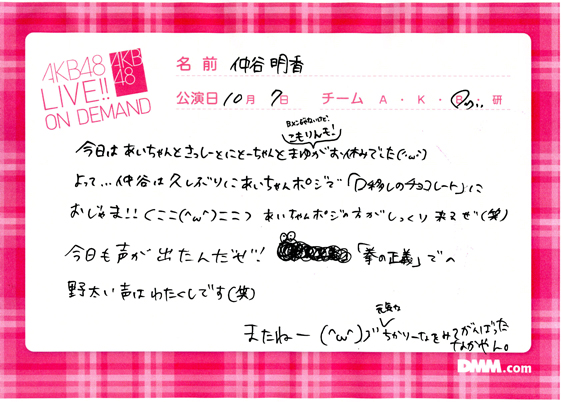 AKB48
LIVE!!
ON DEMAND
AKB
48
名前 仲谷明香
公演日 10月 7日 チーム A・K・B・研
Bメンじゃないけど、
こもりんも!
今日はあいちゃんとさっしーとにとーちゃんとまゆがお休みでした(^ω^)
よって…仲谷は久しぶりにあいちゃんポジで「口移しのチョコレート」に
おじゃま!!くここ(^ω^)ここつ あいちゃんポジの方がしっくり来るぜ(笑)
今日も声が出たんだぜ! 「拳の正義」での
野太い声はわたくしです(笑)
元気な
またねー (^ω^)ノ" ちかりーなをみてがんばった
なかやん。
DMM.com